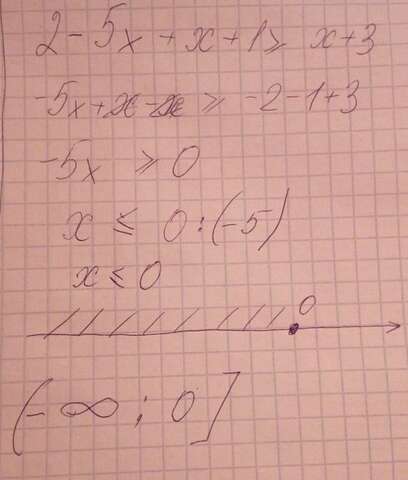 2 - 5x + x + 1 ≥ x + 3
-5x + x - x ≥ -2 - 1 + 3
-5x ≥ 0
x ≤ 0 : (-5)
x ≤ 0
0
(-∞ ; 0]